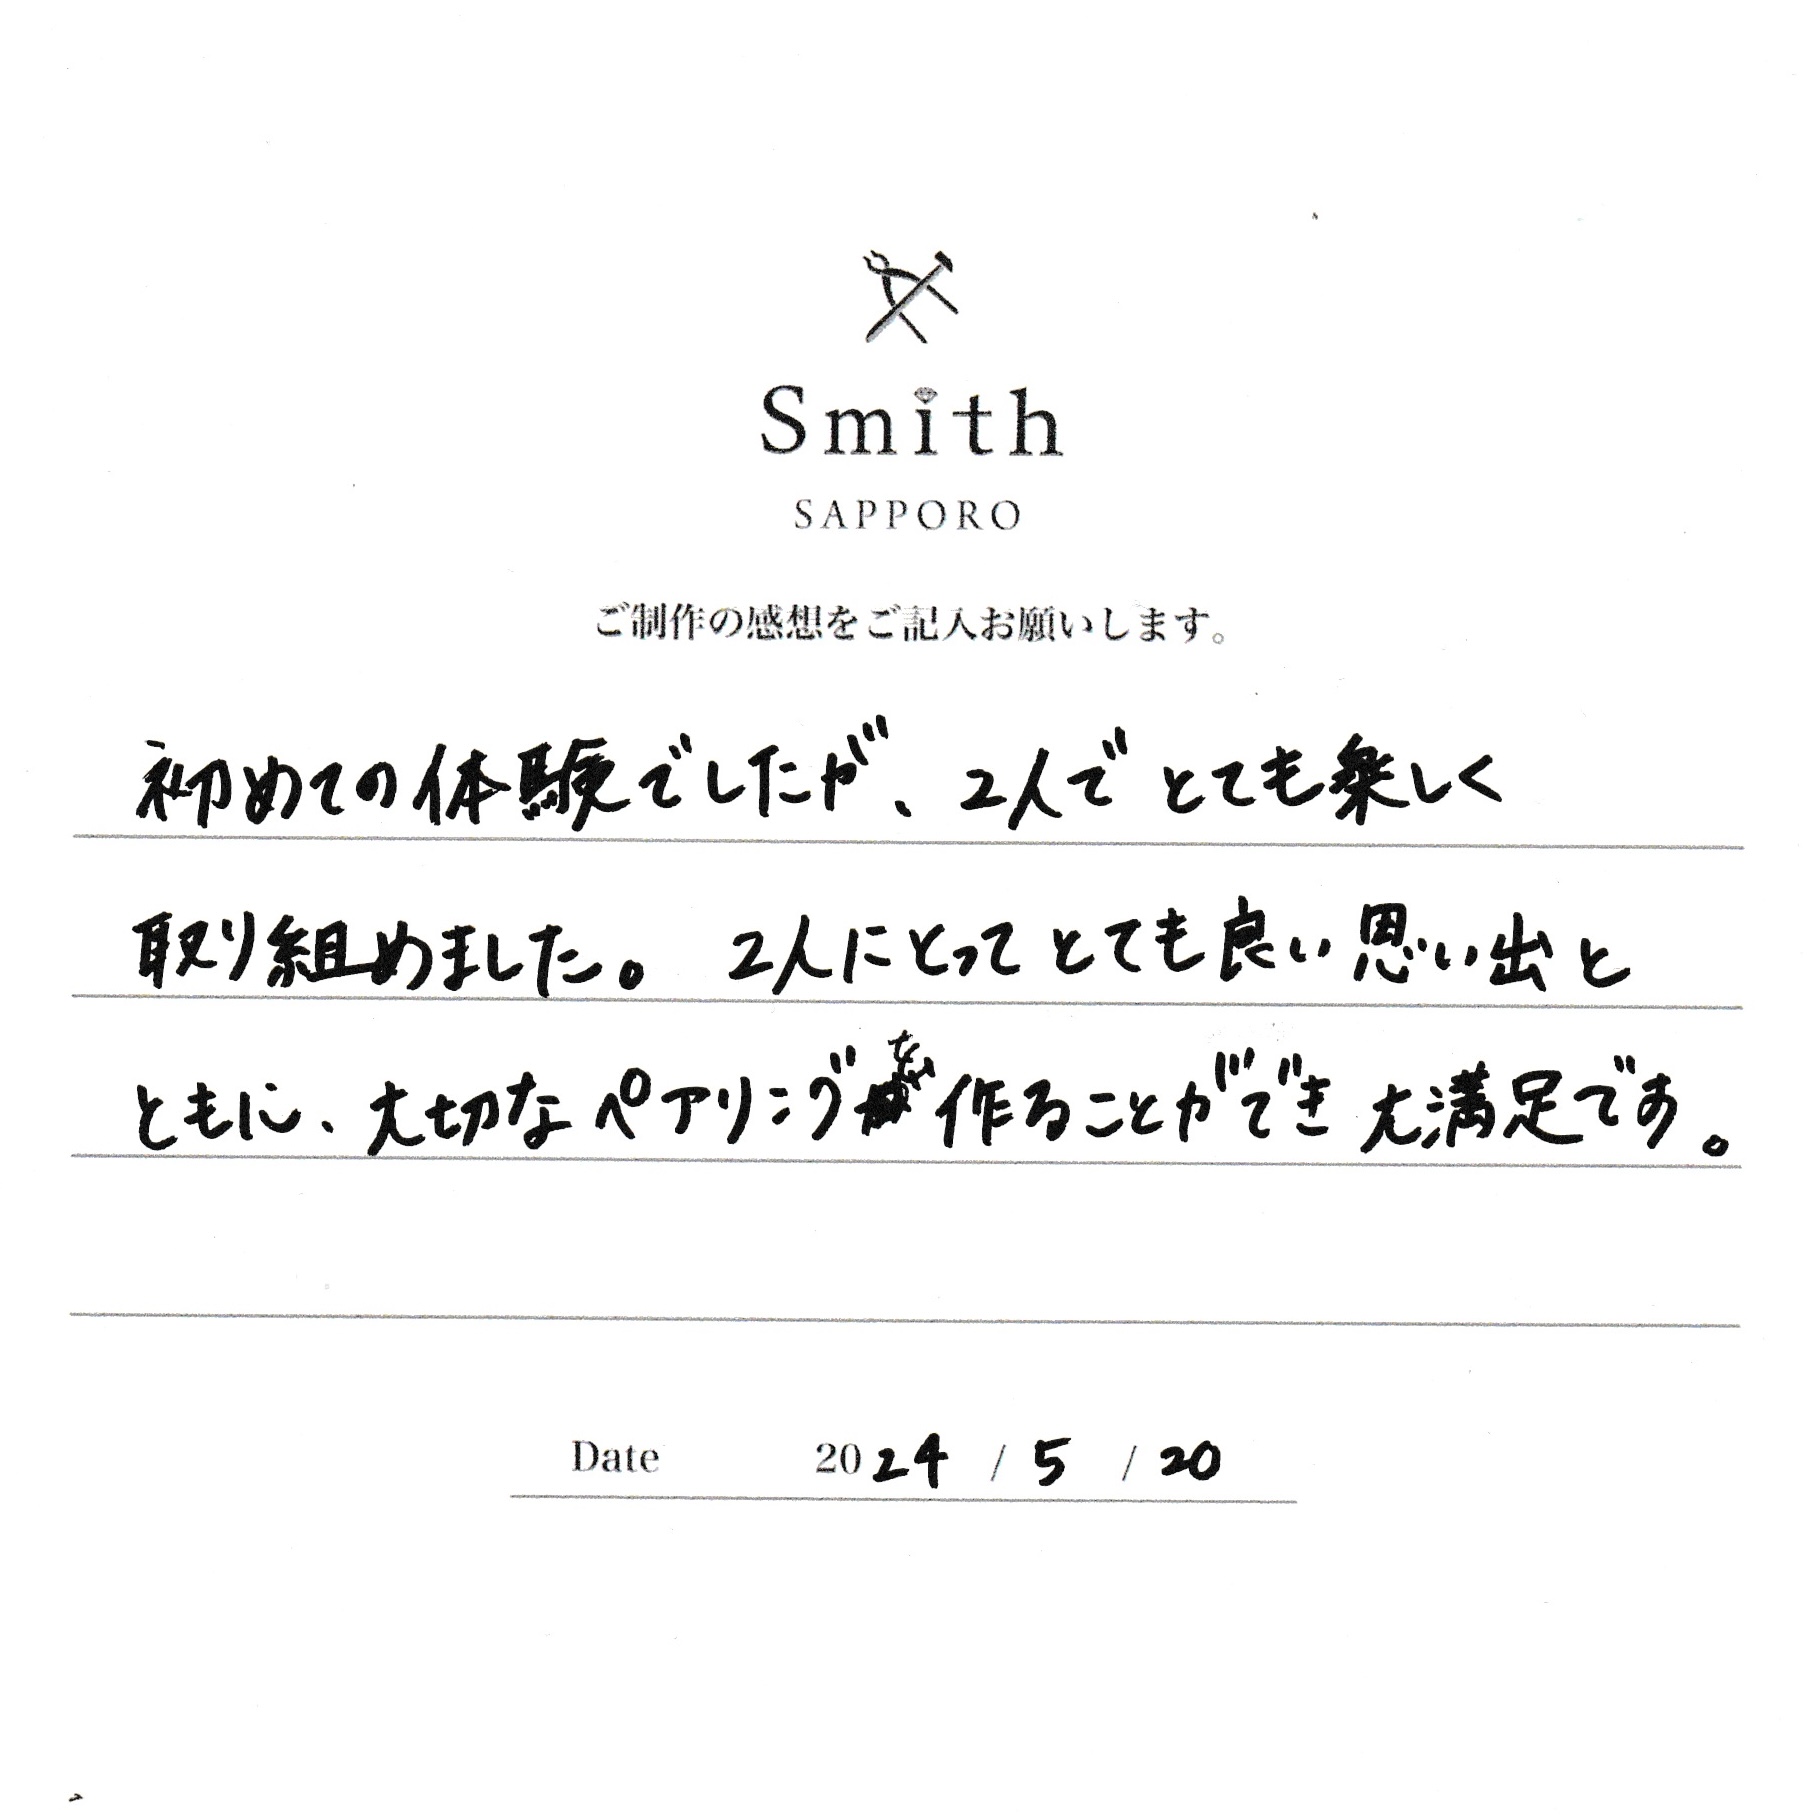 Smith
SAPPORO
ご制作の感想をご記入お願いします。
初めての体験でしたが、2人でとても楽しく
取り組めました。 2人にとってとても良い思い出と
ともに、大切なペアリングを作ることができ大満足です。
Date 2024 / 5 / 20